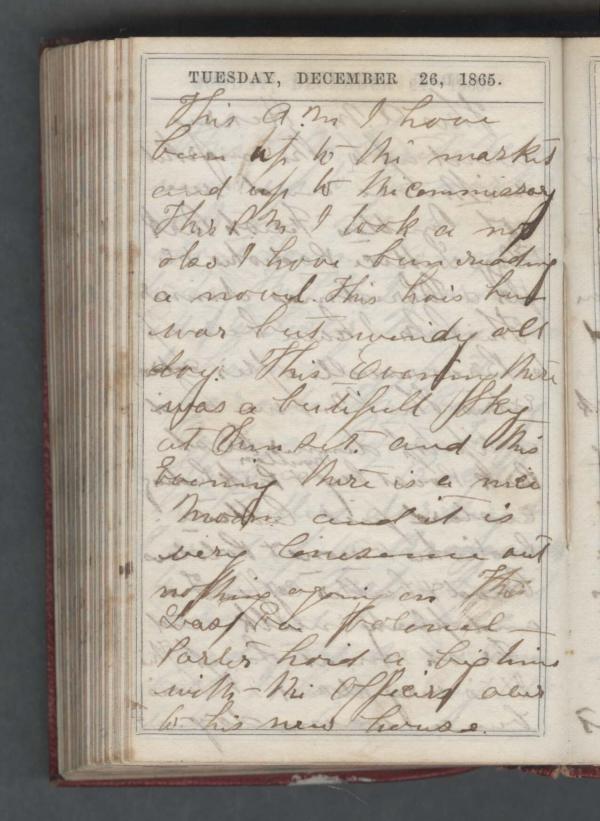 TUESDAY, DECEMBER 26, 1865.
This A.M I have
been up to the market
and up to the commissary
This P.M. I took a nap
also I have bun reading
a novel. This hais bun
war but windy all
day. This Evening thire
was a butifull Sky
at Sun set. and this
Evening there is a nice
Moon and it is
very lonesome out
nothing going on This
Colonel
Porter haid a big time
with the Officers over
to his new house.